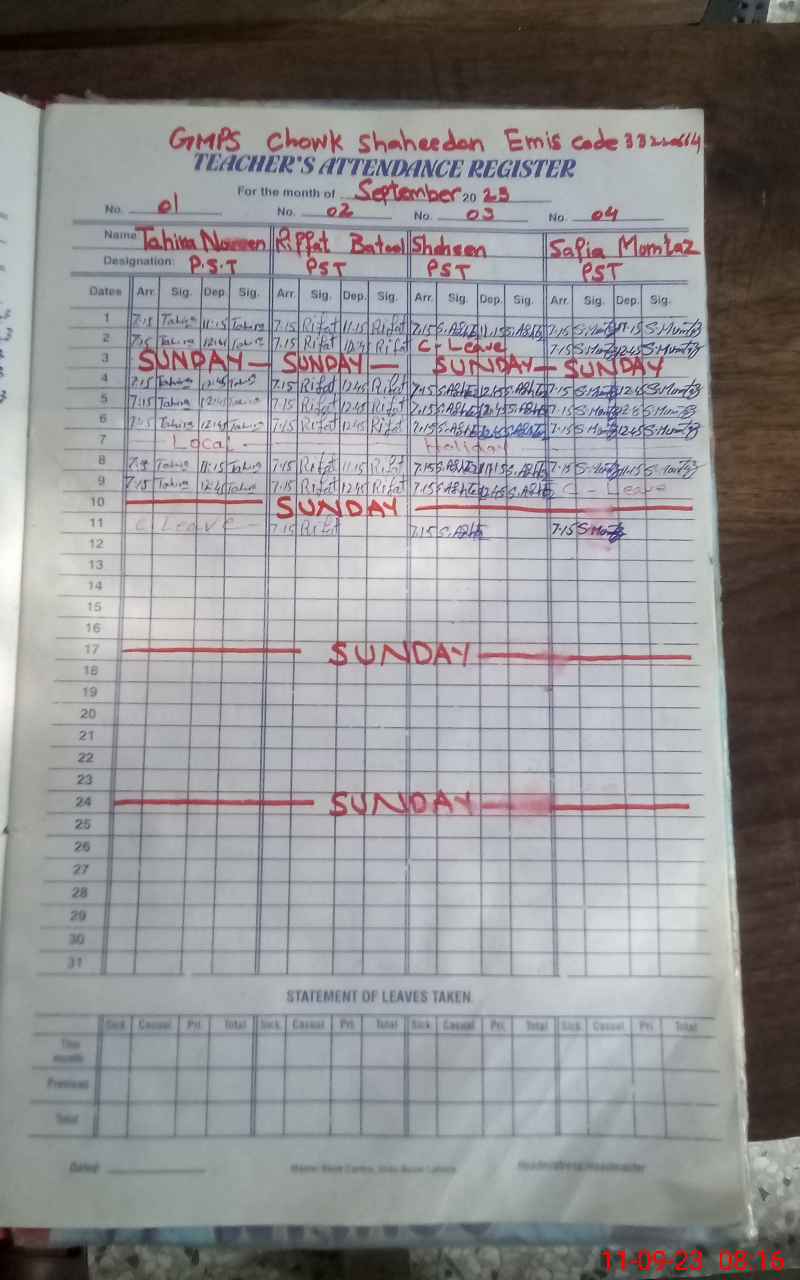 GMPS Chowk Shaheedan Emis code
TEACHER'S ATTENDANCE REGISTER
For the month of September 20 23
No. 01 No. 02 No. 03 No. 04
Name Tahira Noreen Riffat Batool Shaheen Safia Momtaz
Designation: P.S.T PST PST PST
Dates Arr. Sig. Dep. Sig. Arr. Sig. Dep. Sig. Arr. Sig. Dep. Sig. Arr. Sig. Dep. Sig.
1 7:15 Tahira 11:15 Tahira 7.15 Rifat 11.15 Rifat 7.15 11.15 7.15 11.15
2 7:15 Tahira 12:45 Tahira 7.15 Rifat 12.45 Rifat C-Leave 7.15 12.45
3 SUNDAY — SUNDAY — SUNDAY — SUNDAY
4 7:15 Tahira 12:45 Tahira 7.15 Rifat 12.45 Rifat 7.15 12.45 7.15 12.45
5 7:15 Tahira 12:45 Tahira 7.15 Rifat 12.45 Rifat 7.15 12.45 7.15 12.45
6 7:15 Tahira 12:45 Tahira 7.15 Rifat 12.45 Rifat 7.15 12.45 7.15 12.45
7 Local Holiday
8 7:15 Tahira 11:15 Tahira 7.15 Rifat 11.15 Rifat 7.15 11.15 7.15 11.15
9 7:15 Tahira 12:45 Tahira 7.15 Rifat 12.45 Rifat 7.15 12.45 C - Leave
10 SUNDAY
11 C Leave - 7.15 Rifat 7.15 7.15
12
13
14
15
16
17 SUNDAY
18
19
20
21
22
23
24 SUNDAY
25
26
27
28
29
30
31
STATEMENT OF LEAVES TAKEN.
Sick Casual Pri. Total Sick. Casual Pri. Total Sick. Casual Pri. Total Sick. Casual Pri. Total
This month
Previous
Total
Dated Headmistress/Headmaster
11-09-23 08:16